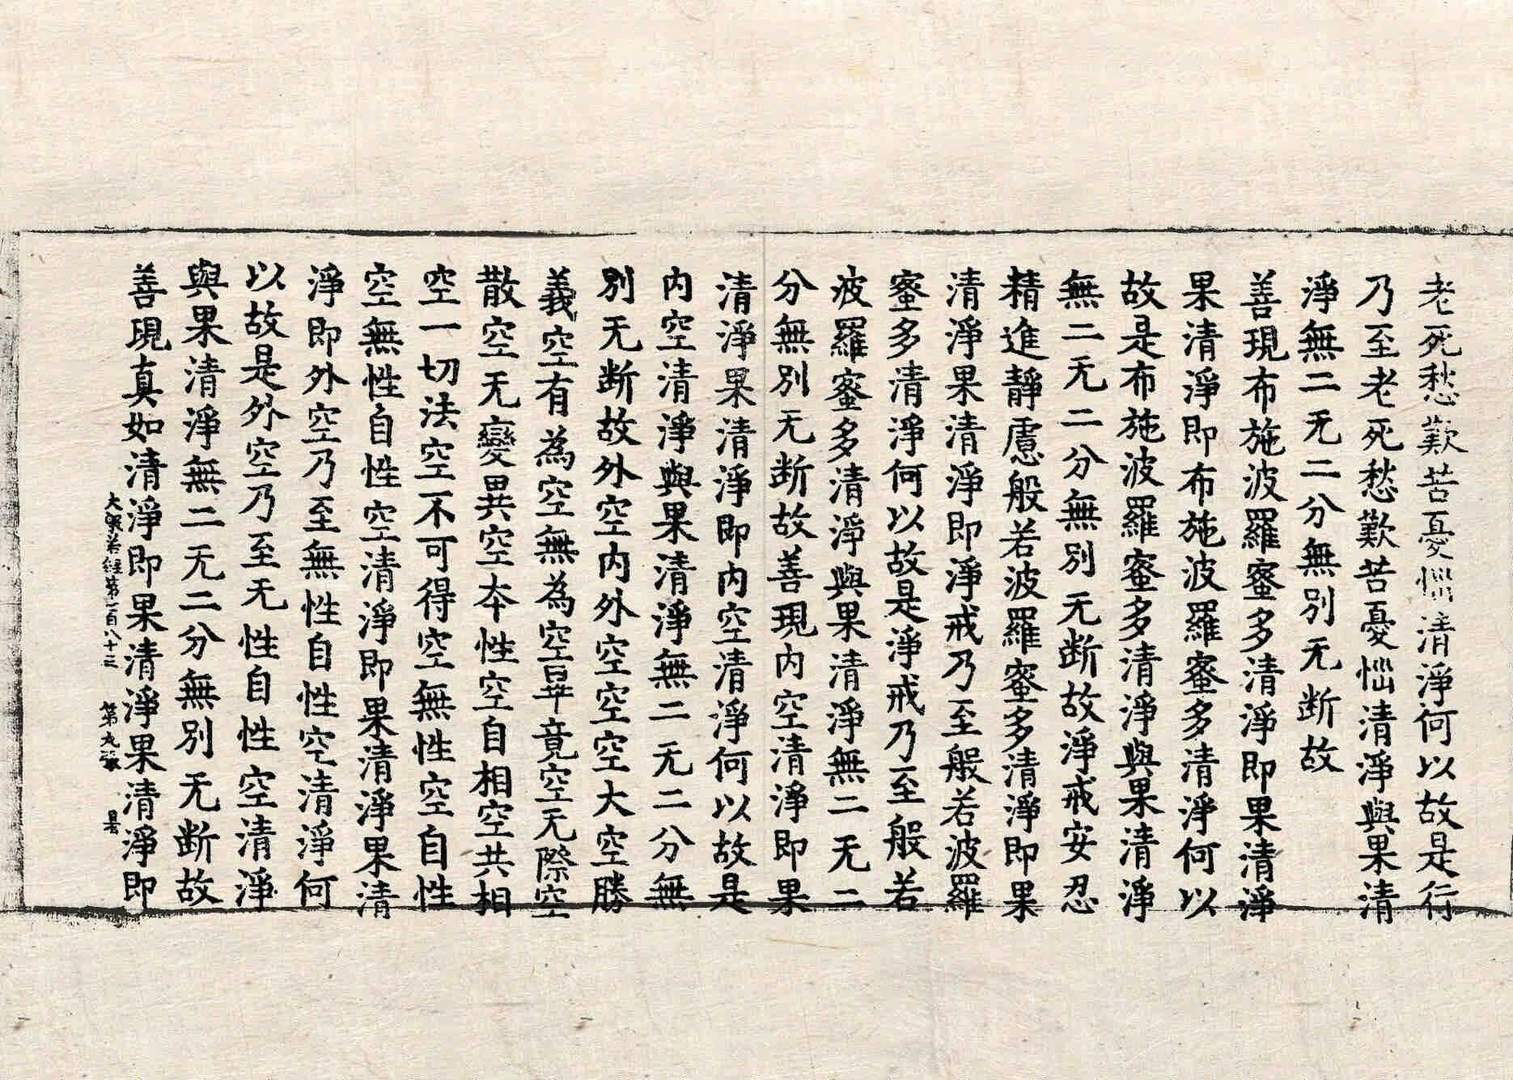 老死愁歎苦憂惱清淨何以故是行
乃至老死愁歎苦憂惱清淨與果清
淨無二无二分無別无断故
善現布施波羅蜜多清淨即果清淨
果清淨即布施波羅蜜多清淨何以
故是布施波羅蜜多清淨與果清淨
無二无二分無別无断故淨戒安忍
精進靜慮般若波羅蜜多清淨即果
清淨果清淨即淨戒乃至般若波羅
蜜多清淨何以故是淨戒乃至般若
波羅蜜多清淨與果清淨無二无二
分無別无断故善現内空清淨即果
清淨果清淨即内空清淨何以故是
内空清淨與果清淨無二无二分無
別无断故外空内外空空空大空勝
義空有為空無為空畢竟空无際空
散空无變異空本性空自相空共相
空一切法空不可得空無性空自性
空無性自性空清淨即果清淨果清
淨即外空乃至無性自性空清淨何
以故是外空乃至无性自性空清淨
與果清淨無二无二分無別无断故
善現真如清淨即果清淨果清淨即
大般若經第一百八十三 第九張 暑